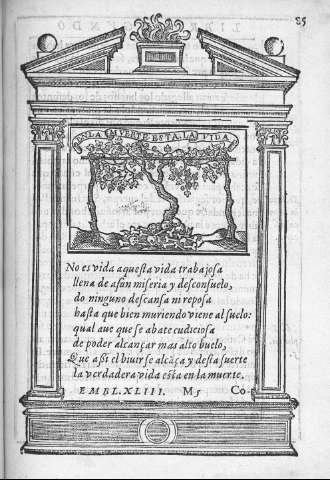 85
EN LA MUERTE ESTA LA VIDA
No es vida aquesta vida trabajosa
llena de afan miseria y desconsuelo,
do ninguno descansa ni reposa
hasta que bien muriendo viene al suelo:
qual aue que se abate cudiciosa
de poder alcançar mas alto buelo,
Que aßi el biuir se alcãça y desta suerte
la verdadera vida està en la muerte.
EMBL.XLIII. M5 Co-